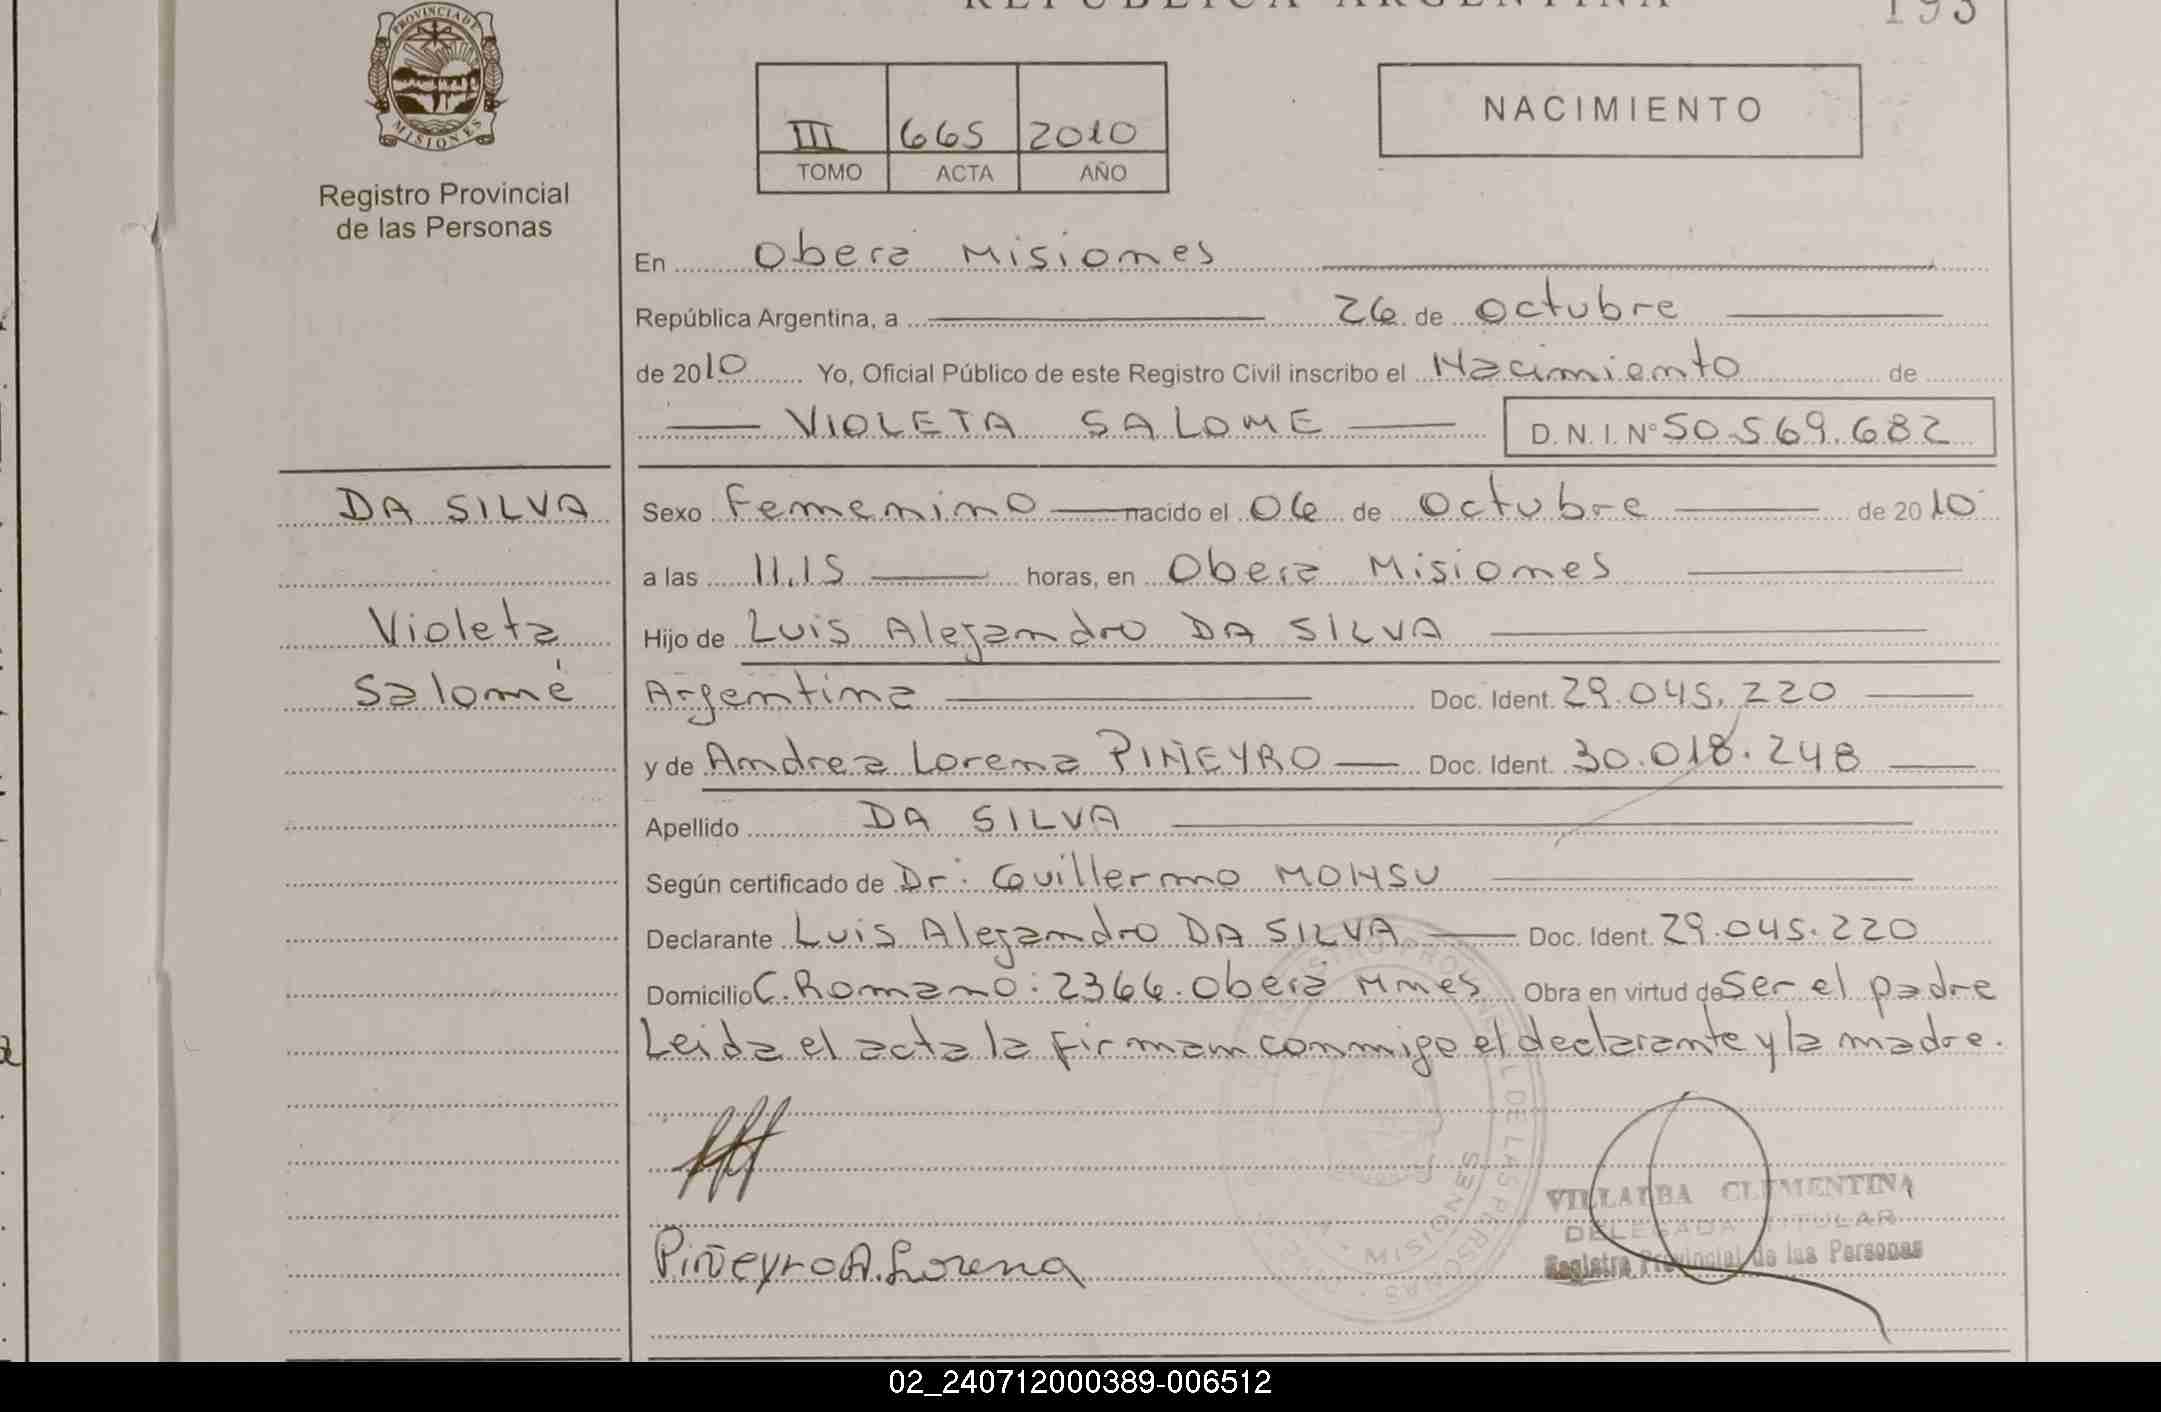 REPUBLICA ARGENTINA
193
PROVINCIA DE MISIONES
Registro Provincial
de las Personas
III 665 2010
TOMO ACTA AÑO
NACIMIENTO
En Oberá Misiones
República Argentina, a 26 de Octubre
de 2010 Yo, Oficial Público de este Registro Civil inscribo el Nacimiento de
VIOLETA SALOME D.N.I. Nº 50.569.682
DA SILVA
Violeta
Salomé
Sexo Femenino nacido el 06 de Octubre de 2010
a las 11.15 horas, en Oberá Misiones
Hijo de Luis Alejandro DA SILVA
Argentina Doc. Ident. 29.045.220
y de Andrea Lorena PIÑEYRO Doc. Ident. 30.018.248
Apellido DA SILVA
Según certificado de Dr: Guillermo MONSU
Declarante Luis Alejandro DA SILVA Doc. Ident. 29.045.220
Domicilio C. Romano: 2366. Oberá Mnes Obra en virtud de Ser el padre
Leida el acta la firman conmigo el declarante y la madre.
VILLALBA CLEMENTINA
DELEGADA TITULAR
Registro Provincial de las Personas
Piñeyro A. Lorena
02_240712000389-006512